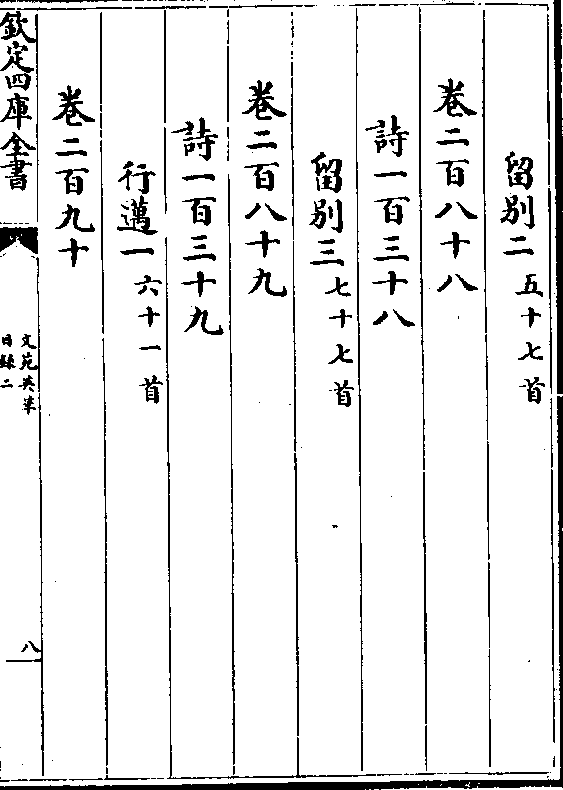 留别二五十七首
卷二百八十八
詩一百三十八
留别三七十七首
卷二百八十九
詩一百三十九
行邁一六十一首
卷二百九十
欽定四庫全書
文苑英華
目録二
八